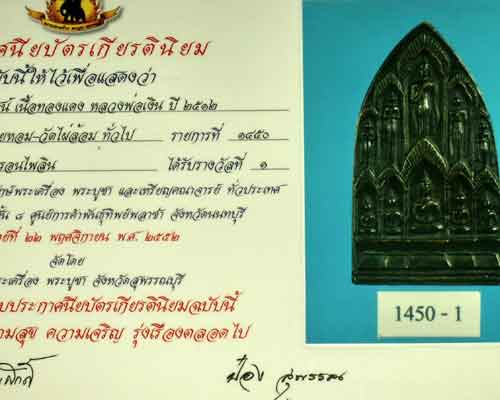 าศนียบัตรเกียรตินิยม
ับนี้ให้ไว้เพื่อแสดงว่า
เนื้อทองแดง หลวงพ่อเงิน ปี ๒๕๑๒
ยหอม-วัดไผ่ล้อม ทั่วไป รายการที่ ๑๔๕๐
รอนไพลิน ได้รับรางวัลที่ ๑
พระเครื่อง พระบูชา และเหรียญคณาจารย์ ทั่วประเทศ
ั้น ๘ ศูนย์การค้าพันธุ์ทิพย์พลาซ่า จังหวัดนนทบุรี
ที่ ๒๒ พฤศจิกายน พ.ศ. ๒๕๕๒
จัดโดย
ระเครื่อง พระบูชา จังหวัดสุพรรณบุรี
บประกาศนียบัตรเกียรตินิยมฉบับนี้
ามสุข ความเจริญ รุ่งเรืองตลอดไป
ป๋อง สุพรรณ
1450 - 1